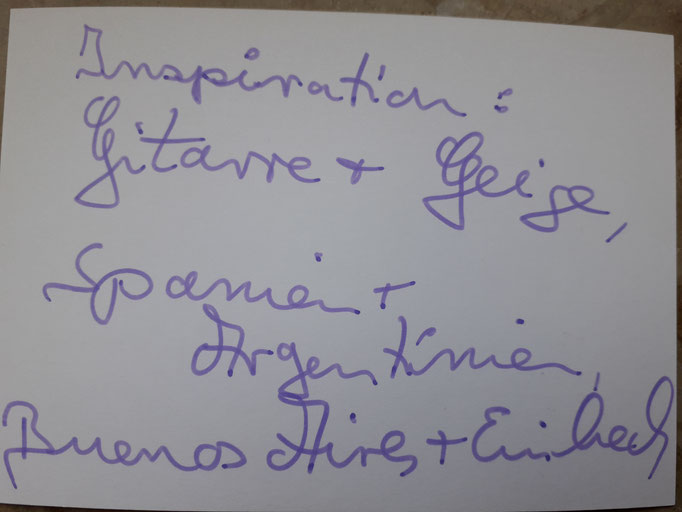 Inspiration:
Gitarre + Geige,
Spanien +
Argentinien,
Buenos Aires + Einbeck